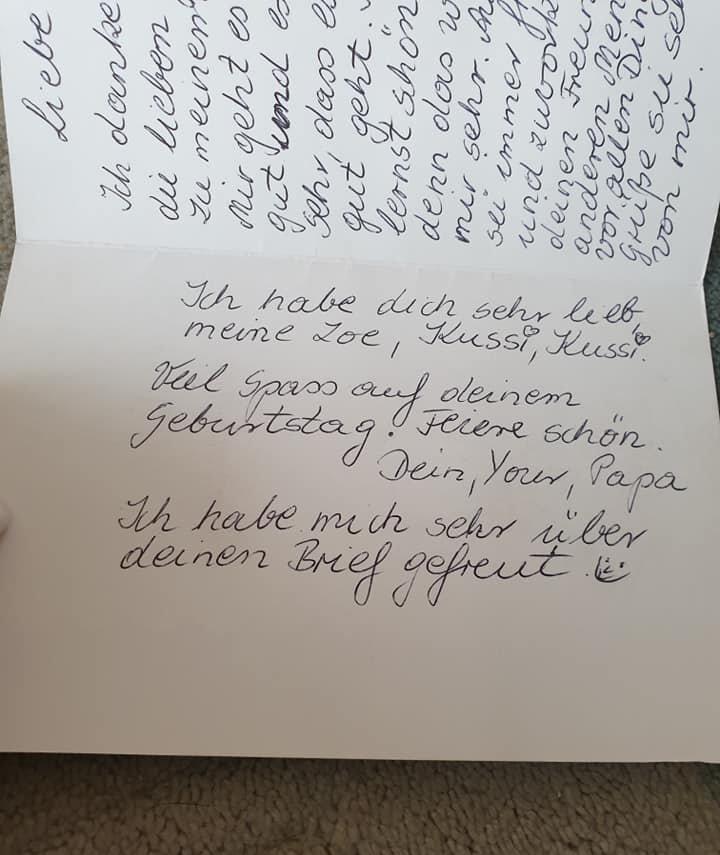 Liebe
Ich danke
die lieben
zu meinem
Mir geht es
gut und es
sehr, dass
gut geht.
lernst schön
denn das
mir sehr.
sei immer
und
deinen
anderen
vor allen
Grüße sie
von mir.
Ich habe dich sehr lieb,
meine Zoe, Kussi, Kussi.
Viel Spass auf deinem
Geburtstag. Feiere schön.
Dein, Your, Papa
Ich habe mich sehr über
deinen Brief gefreut.